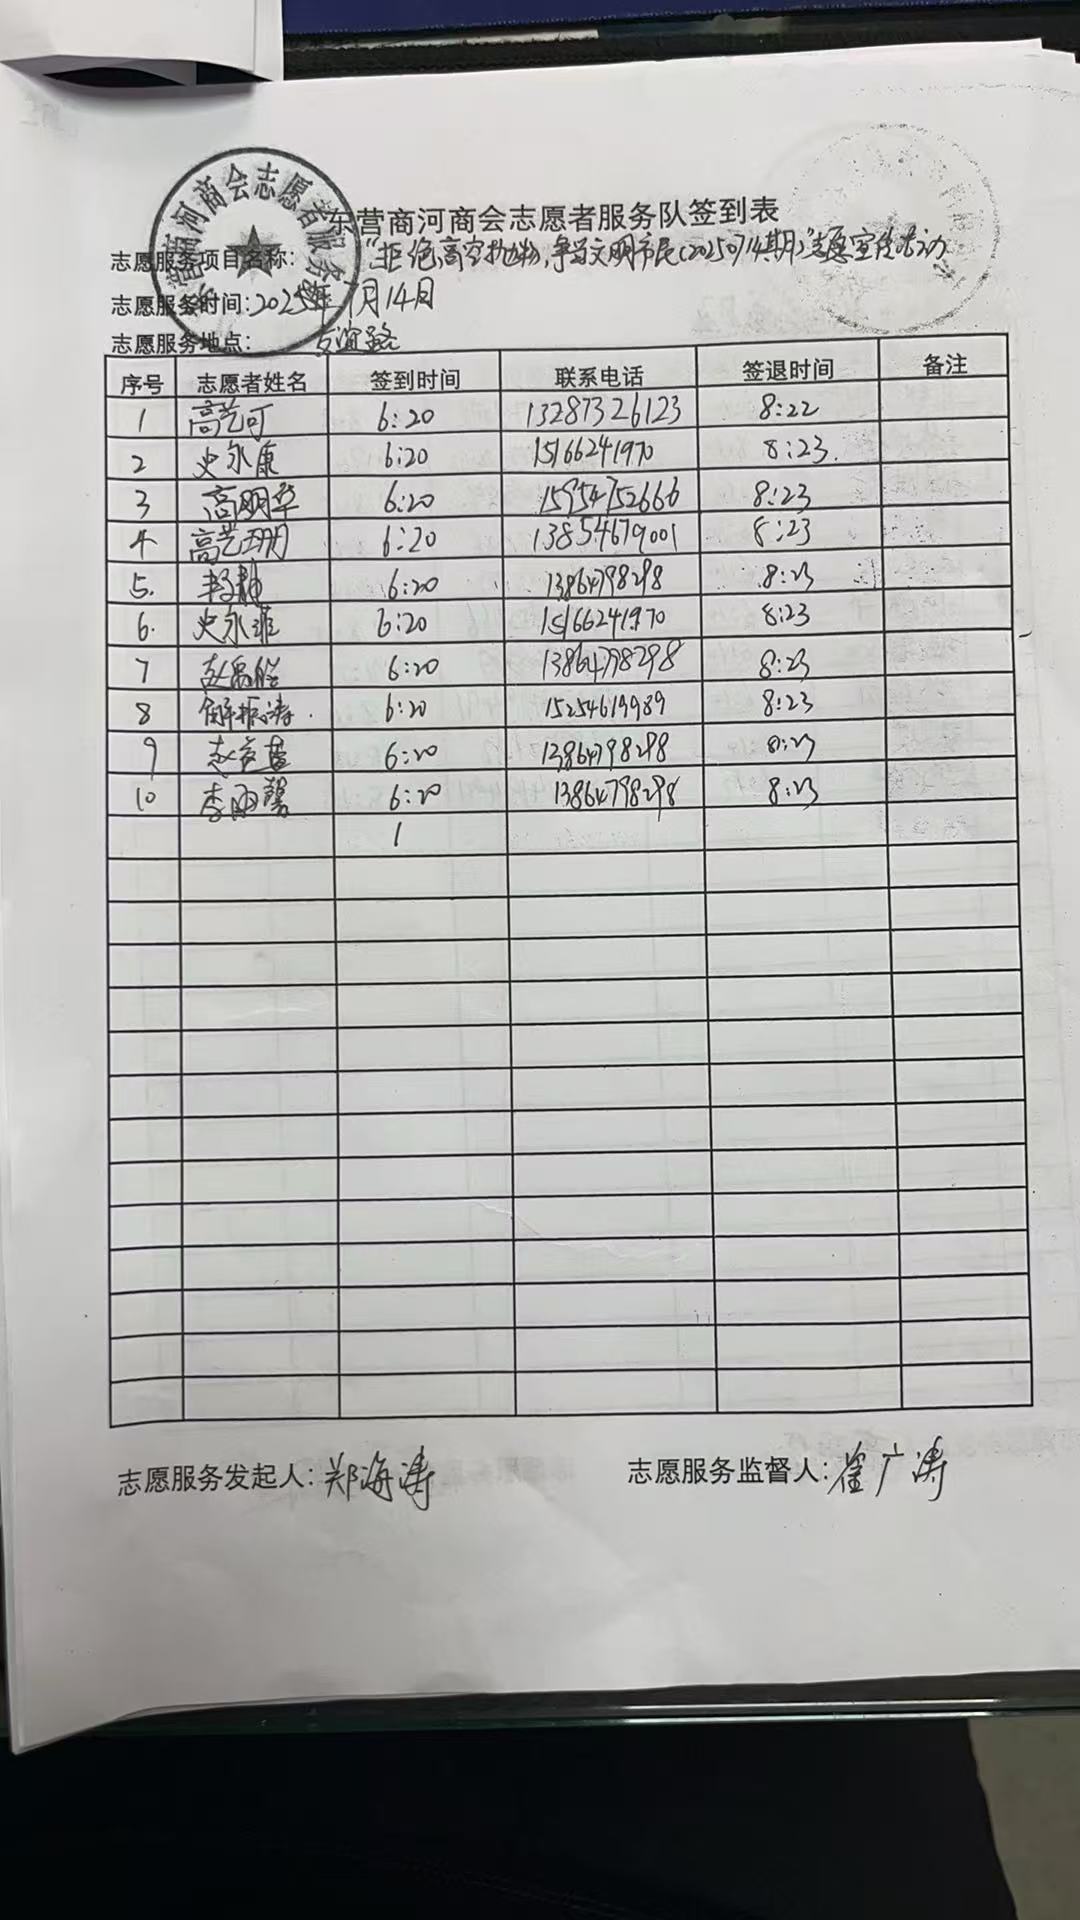 东营商河商会志愿者服务队签到表
志愿服务项目名称: "拒绝高空抛物,争当文明市民(2025年0714期)"志愿宣传活动
志愿服务时间:2025年7月14日
志愿服务地点: 友谊路
序号 志愿者姓名 签到时间 联系电话 签退时间 备注
1 高艺可 6:20 13287326123 8:22
2 史永康 6:20 15166241970 8:23.
3 高明华 6:20 15954752666 8:23
4 高艺珊 6:20 13854679001 8:23
5. 6:20 13864798298 8:23
6. 史永 6:20 15166241970 8:23
7 赵 6:20 13864798298 8:23
8 解振涛. 6:20 15254619989 8:23
9 6:20 13864798298 8:23
10 李雨馨 6:20 13864798298 8:23
1
志愿服务发起人:郑海涛 志愿服务监督人:崔广涛